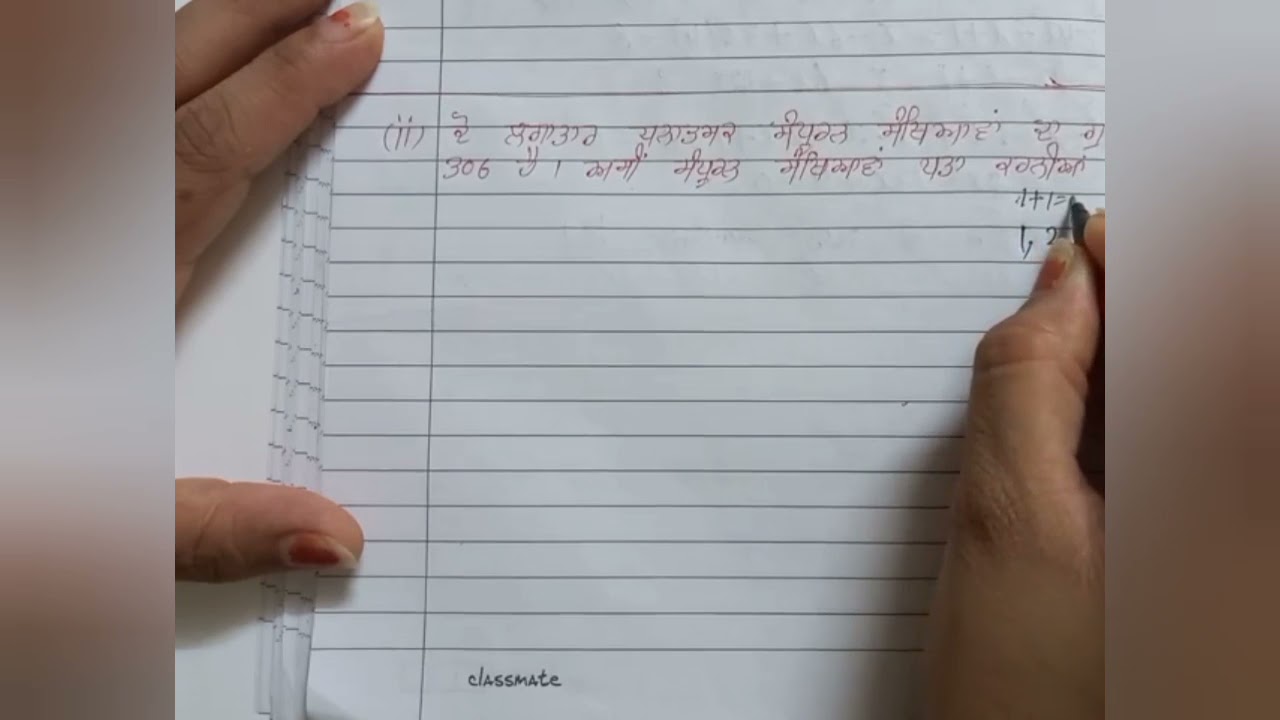 (ii) ਦੋ ਲਗਾਤਾਰ ਧਨਾਤਮਕ ਸੰਪੂਰਨ ਸੰਖਿਆਵਾਂ ਦਾ ਗੁ
306 ਹੈ । ਅਸੀਂ ਸੰਪੂਰਨ ਸੰਖਿਆਵਾਂ ਪਤਾ ਕਰਨੀਆਂ
1+1=
1, 2
classmate